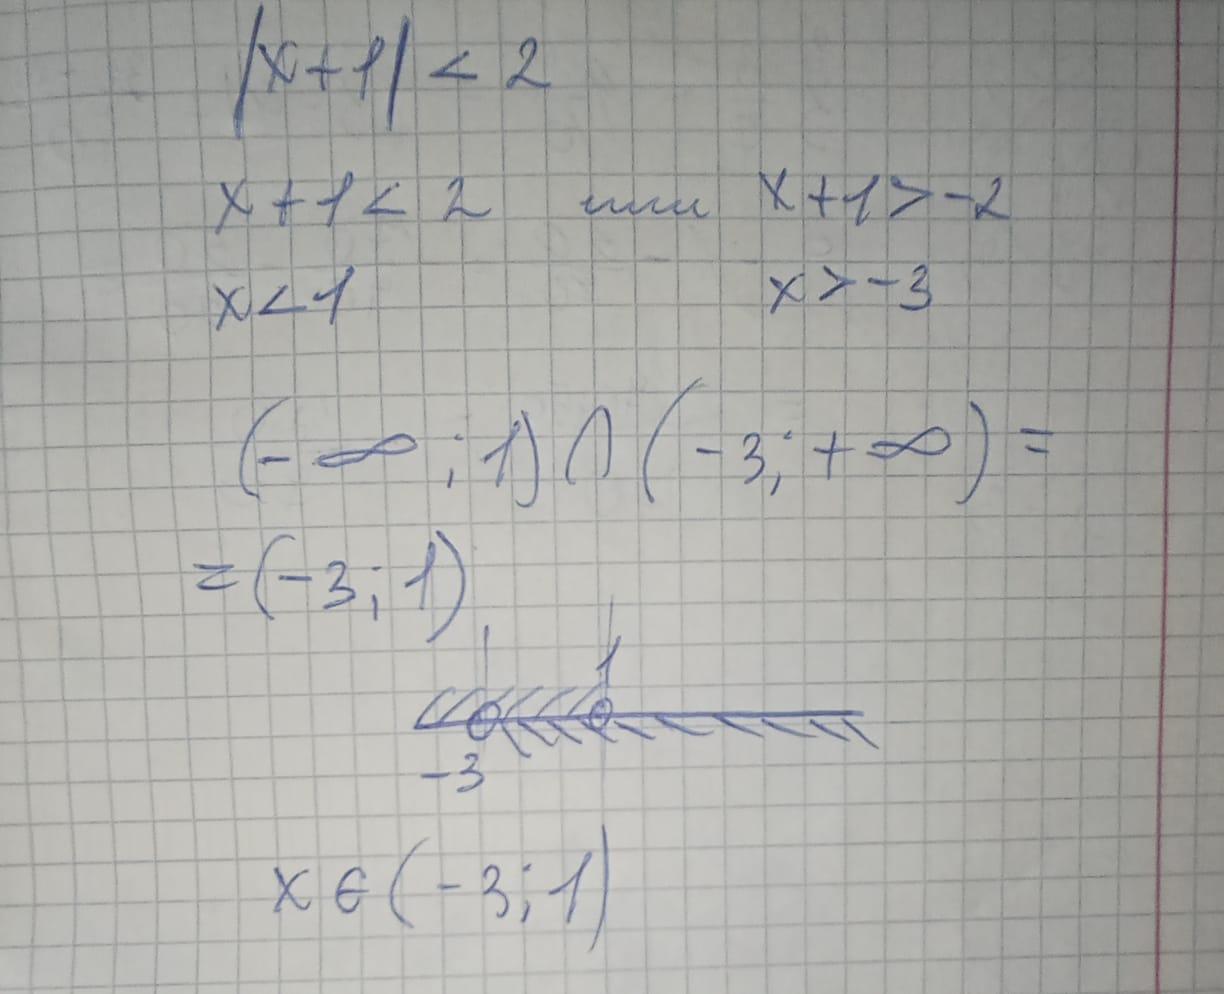 |x+1| < 2
x+1 < 2 или x+1 > -2
x < 1 x > -3
(-∞; 1) ∩ (-3; +∞) =
= (-3; 1)
1
-3
x ∈ (-3; 1)